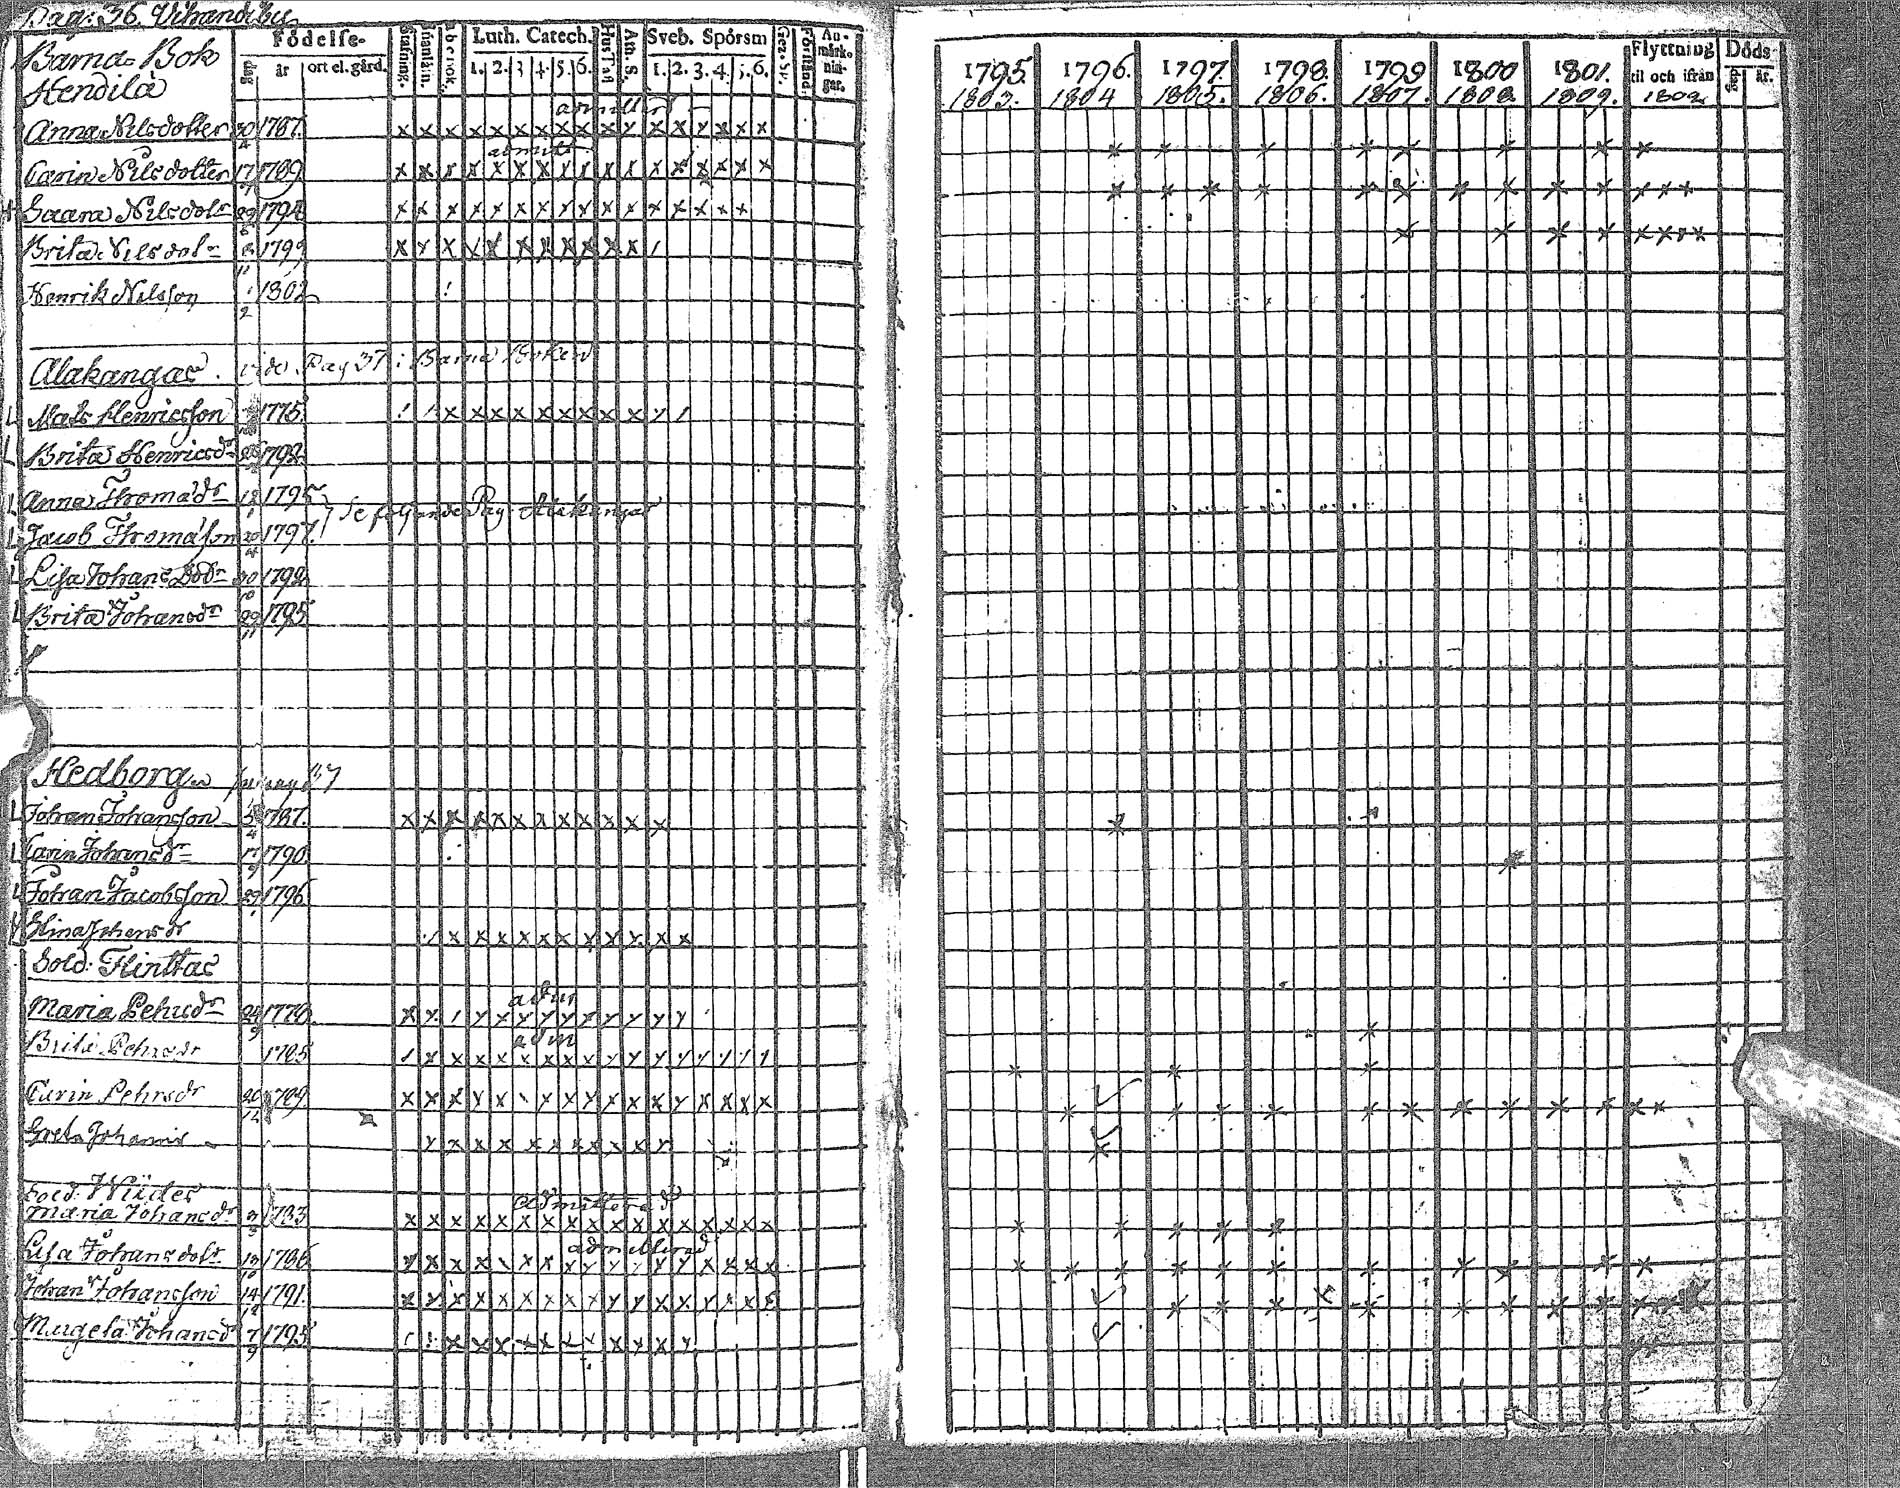 Pag: 36. Vihandibu
Barna-Bok
Födelse-
dag år ort el. gård.
Luth. Catech.
1. 2. 3. 4. 5. 6.
Hus Taf
Ath. S.
Sveb. Spörsm
1. 2. 3. 4. 5. 6.
Förstånd.
An-
märk-
nin-
gar.
1795. 1796. 1797. 1798. 1799 1800 1801.
1803. 1804 1805. 1806. 1807. 1808. 1809.
Flyttning
til och ifrån
1802
Döds
dag år.
Hendilä
admitterd
Anna Nilsdotter 30 1787.
4
admitt
Carin Nilsdotter 17 1789
Saara Nilsdotr 1794
Brita Nilsdotr 1799
11
Henrik Nilsson 1 1802
2
Alakangas. vide. Pag 37 i Barna Boken
Mats Henricsson 1775.
Brita Henricsdr 1792
Anna Thomadr 12 1795
1
Se följande Pag. Alakangas
Jacob Thomasson 20 1797.
Lisa Johans Dotr 30 1792
Brita Johansdr 29 1795
11
Hedborg
Johan Johansson 5 1787.
4
Carin Johansdr 1790
Johan Jacobsson 29 1796
Elina Johansdr
Sold: Flinttas
adm
Maria Pehrsdr 24 1778
9
adm
Brita Pehrsdr 1785
Carin Pehrsdr 20 1789
12
Greta Johansdr
Sold: Wiides
admitterad
Maria Johansdr 1783
admitterad
Lisa Johansdotr 13 1786
10
Johan Johansson 14 1791.
12
Margeta Johansdr 7 1795
9